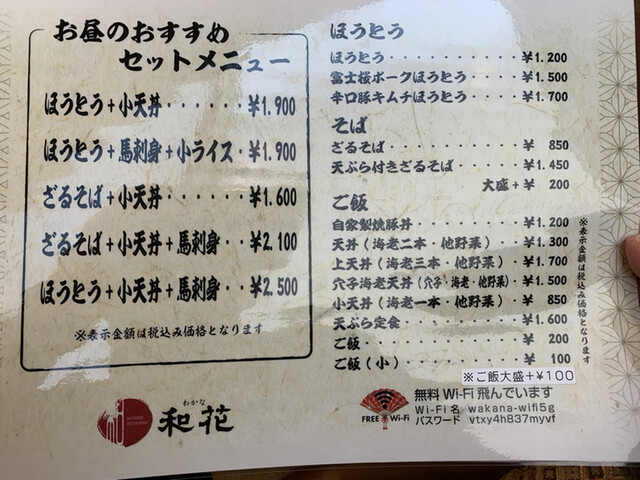 お昼のおすすめ
セットメニュー
ほうとう+小天丼・・・・・・¥1.900
ほうとう+馬刺身+小ライス・¥1.900
ざるそば+小天丼・・・・・・¥1.600
ざるそば+小天丼+馬刺身・・¥2.100
ほうとう+小天丼+馬刺身・・¥2.500
※表示金額は税込み価格となります
わかな
和花
ほうとう
ほうとう・・・・・・・・・・・¥1.200
富士桜ポークほうとう・・・・・¥1.500
辛口豚キムチほうとう・・・・・¥1.700
そば
ざるそば・・・・・・・・・・・¥ 850
天ぷら付きざるそば・・・・・・¥1.450
大盛+¥ 200
ご飯
自家製焼豚丼・・・・・・・・・¥1.200
天丼(海老二本・他野菜)・・・¥1.300
上天丼(海老三本・他野菜)・・¥1.700
穴子海老天丼(穴子・海老・他野菜)・¥1.500
小天丼(海老一本・他野菜)・・¥ 850
天ぷら定食・・・・・・・・・・¥1.600
ご飯・・・・・・・・・・・・・¥ 200
ご飯(小)・・・・・・・・・・¥ 100
※ご飯大盛+¥100
※表示金額は税込み価格となります
FREE Wi-Fi
無料 Wi-Fi 飛んでいます
Wi-Fi 名 wakana-wifi5g
パスワード vtxy4h837myvf